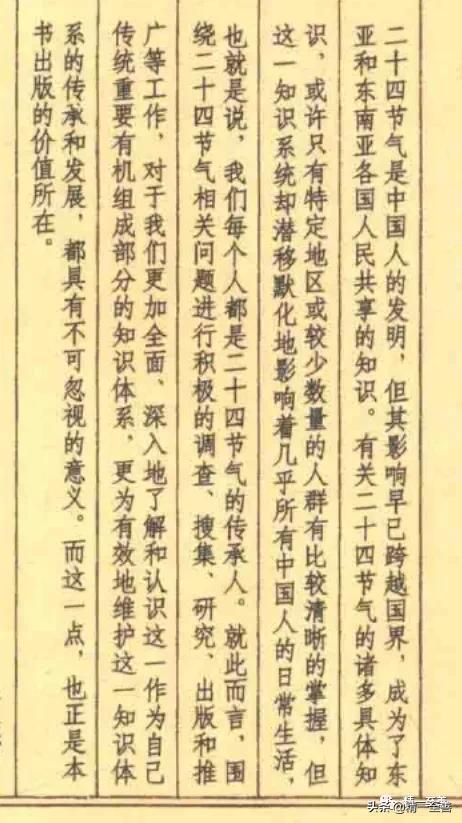 二十四节气是中国人的发明，但其影响早已跨越国界，成为了东
亚和东南亚各国人民共享的知识。有关二十四节气的诸多具体知
识，或许只有特定地区或较少数量的人群有比较清晰的掌握，但
这一知识系统却潜移默化地影响着几乎所有中国人的日常生活，
也就是说，我们每个人都是二十四节气的传承人。就此而言，围
绕二十四节气相关问题进行积极的调查、搜集、研究、出版和推
广等工作，对于我们更加全面、深入地了解和认识这一作为自己
传统重要有机组成部分的知识体系，更为有效地维护这一知识体
系的传承和发展，都具有不可忽视的意义。而这一点，也正是本
书出版的价值所在。
精一至善
头条@精一至善